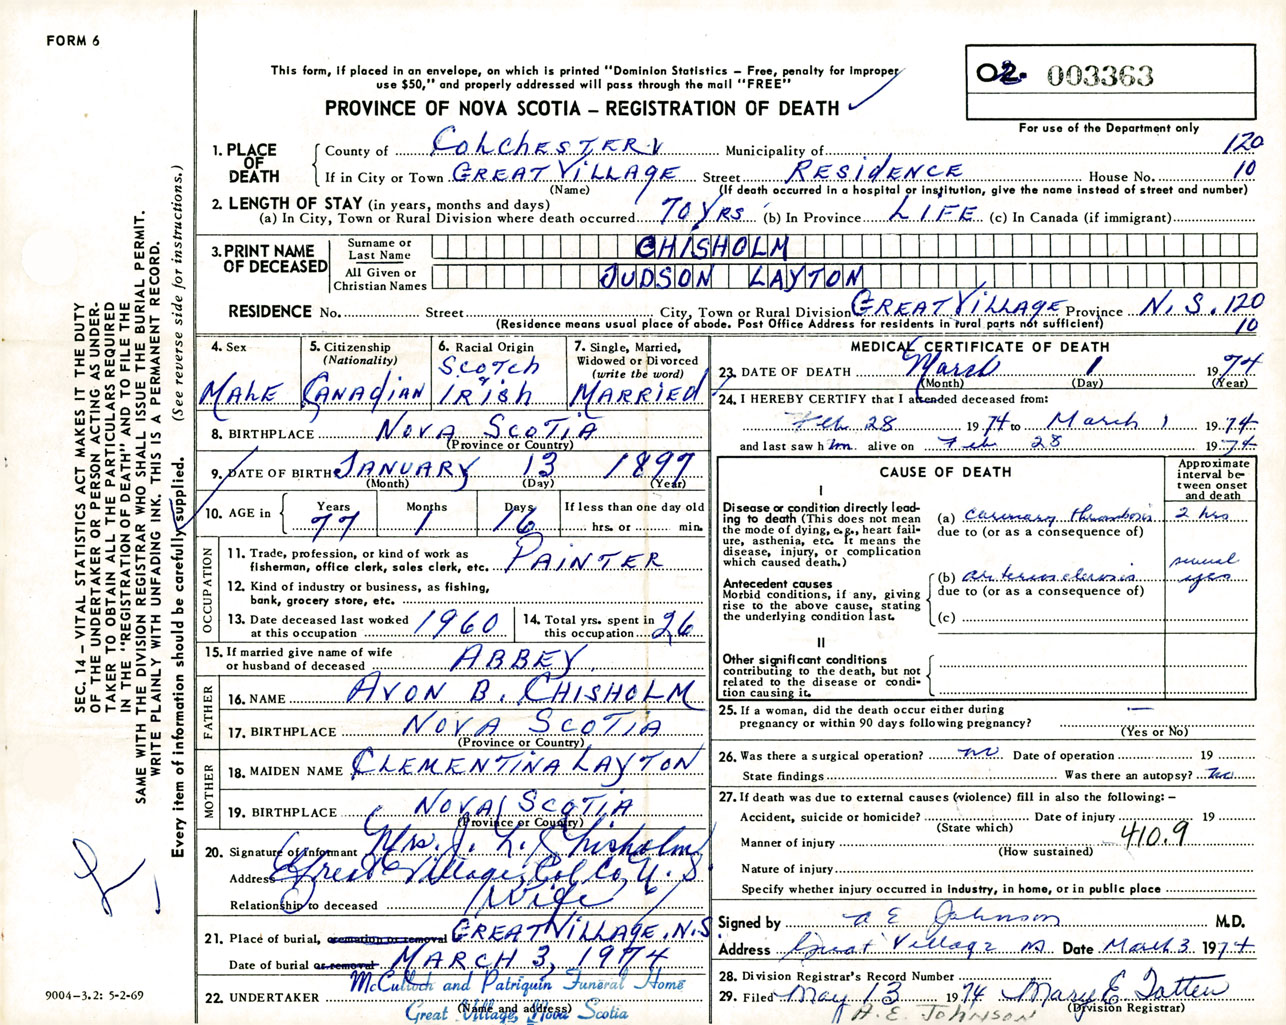 FORM 6
This form, if placed in an envelope, on which is printed "Dominion Statistics – Free, penalty for improper
use $50," and properly addressed will pass through the mail "FREE"
PROVINCE OF NOVA SCOTIA – REGISTRATION OF DEATH
02. 003363
For use of the Department only
1. PLACE OF DEATH
County of COLCHESTER Municipality of 120
If in City or Town GREAT VILLAGE Street RESIDENCE House No. 10
(Name) (If death occurred in a hospital or institution, give the name instead of street and number)
2. LENGTH OF STAY (in years, months and days)
(a) In City, Town or Rural Division where death occurred 70 YRS (b) In Province LIFE (c) In Canada (if immigrant)
3. PRINT NAME OF DECEASED
Surname or Last Name CHISHOLM
All Given or Christian Names JUDSON LAYTON
RESIDENCE No. Street City, Town or Rural Division GREAT VILLAGE Province N.S. 120
(Residence means usual place of abode. Post Office Address for residents in rural parts not sufficient) 10
4. Sex
MALE
5. Citizenship
(Nationality)
CANADIAN
6. Racial Origin
SCOTCH
IRISH
7. Single, Married,
Widowed or Divorced
(write the word)
MARRIED
8. BIRTHPLACE NOVA SCOTIA
(Province or Country)
9. DATE OF BIRTH JANUARY 13 1897
(Month) (Day) (Year)
10. AGE in Years Months Days If less than one day old
77 1 16 hrs. or min.
OCCUPATION
11. Trade, profession, or kind of work as
fisherman, office clerk, sales clerk, etc. PAINTER
12. Kind of industry or business, as fishing,
bank, grocery store, etc.
13. Date deceased last worked
at this occupation 1960
14. Total yrs. spent in
this occupation 26
15. If married give name of wife
or husband of deceased ABBEY
FATHER
16. NAME AVON B. CHISHOLM
17. BIRTHPLACE NOVA SCOTIA
(Province or Country)
MOTHER
18. MAIDEN NAME CLEMENTINA LAYTON
19. BIRTHPLACE NOVA SCOTIA
(Province or Country)
20. Signature of Informant Mrs. J. L. Chisholm
Address Great Village, Col. Co., N.S.
Relationship to deceased Wife
21. Place of burial, cremation or removal GREAT VILLAGE, N.S.
Date of burial or removal MARCH 3, 1974
22. UNDERTAKER McCulloch and Patriquin Funeral Home
(Name and address)
Great Village, Nova Scotia
MEDICAL CERTIFICATE OF DEATH
23. DATE OF DEATH March 1 1974
(Month) (Day) (Year)
24. I HEREBY CERTIFY that I attended deceased from:
Feb 28 1974 to March 1 1974
and last saw him alive on Feb 28 1974
CAUSE OF DEATH
Approximate
interval be-
tween onset
and death
I
Disease or condition directly lead-
ing to death (This does not mean
the mode of dying, e.g., heart fail-
ure, asthenia, etc. It means the
disease, injury, or complication
which caused death.)
(a) coronary thrombosis 2 hrs
due to (or as a consequence of)
Antecedent causes
Morbid conditions, if any, giving
rise to the above cause, stating
the underlying condition last.
(b) arteriosclerosis several yrs
due to (or as a consequence of)
(c)
II
Other significant conditions
contributing to the death, but not
related to the disease or condi-
tion causing it.
25. If a woman, did the death occur either during
pregnancy or within 90 days following pregnancy? —
(Yes or No)
26. Was there a surgical operation? no Date of operation 19
State findings Was there an autopsy? no
27. If death was due to external causes (violence) fill in also the following: –
Accident, suicide or homicide? Date of injury 19
(State which)
Manner of injury 410.9
(How sustained)
Nature of injury
Specify whether injury occurred in industry, in home, or in public place
Signed by A E Johnson M.D.
Address Great Village NS Date March 3 1974
28. Division Registrar's Record Number
29. Filed May 13 1974 Mary E Tatten
A. E. JOHNSON (Division Registrar)
SEC. 14 – VITAL STATISTICS ACT MAKES IT THE DUTY
OF THE UNDERTAKER OR PERSON ACTING AS UNDER-
TAKER TO OBTAIN ALL THE PARTICULARS REQUIRED
IN THE "REGISTRATION OF DEATH" AND TO FILE THE
SAME WITH THE DIVISION REGISTRAR WHO SHALL ISSUE THE BURIAL PERMIT.
WRITE PLAINLY WITH UNFADING INK. THIS IS A PERMANENT RECORD.
Every item of information should be carefully supplied. (See reverse side for instructions.)
9004–3.2: 5-2-69